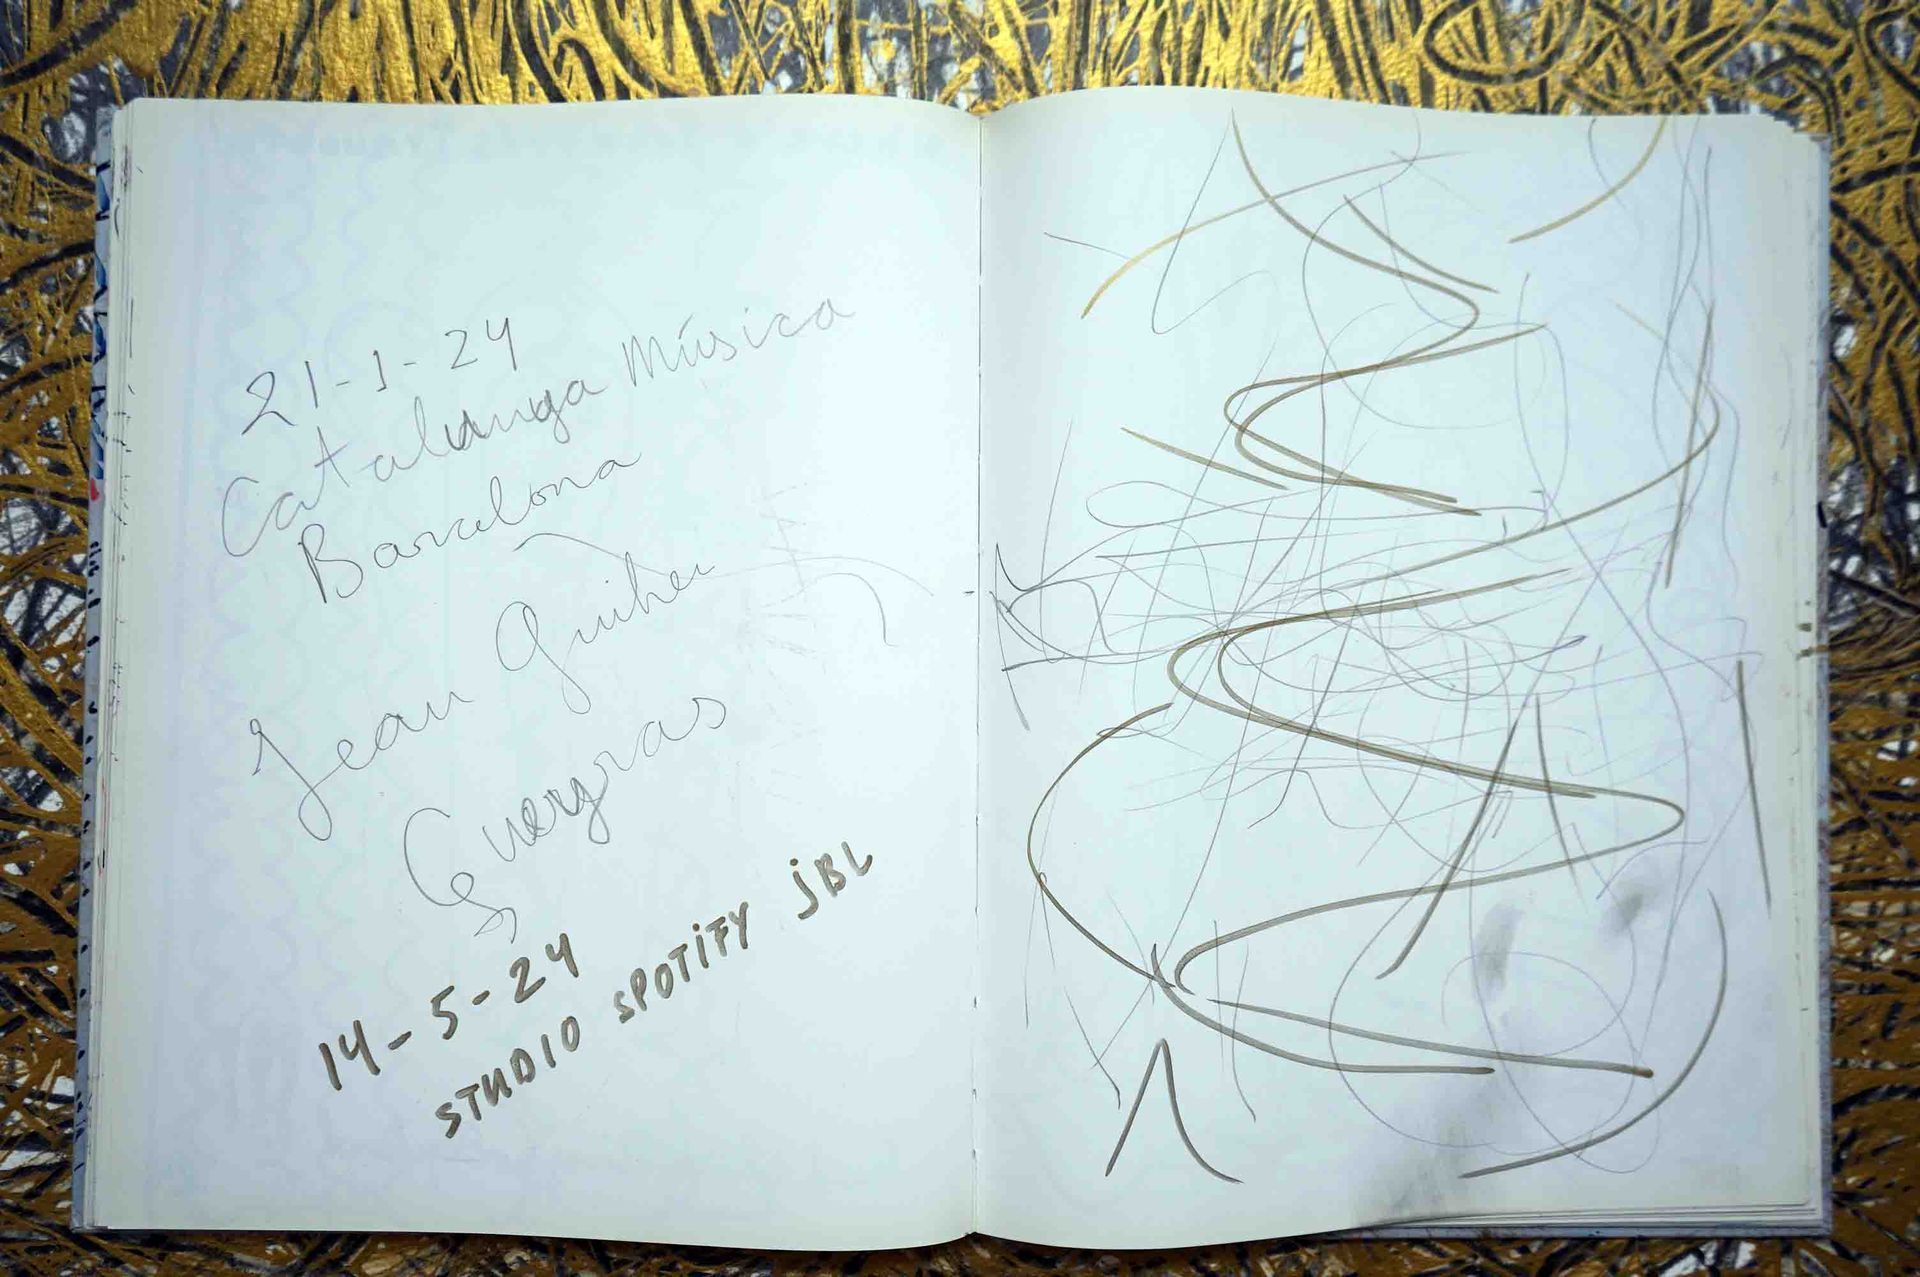 21-1-24
Catalunya Música
Barcelona
Jean Guihen
Queyras
14-5-24
STUDIO SPOTIFY JBL